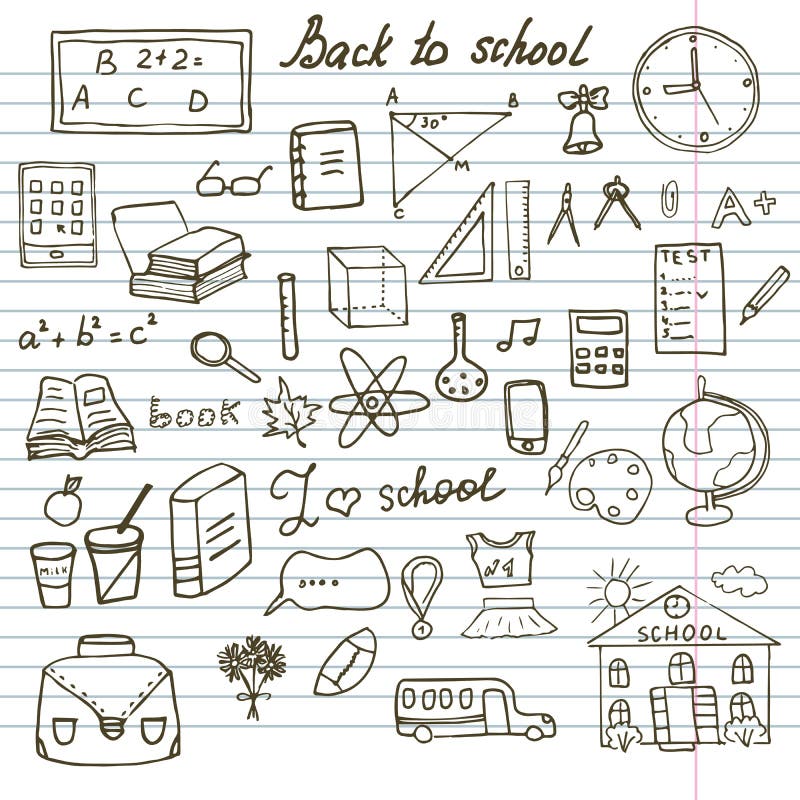 Back to school
B 2+2=
A C D
A B
30°
M
C
A+
TEST
1.
2.
3.
4.
5.
a² + b² = c²
book
I ♡ school
MILK
....
№1
1
SCHOOL